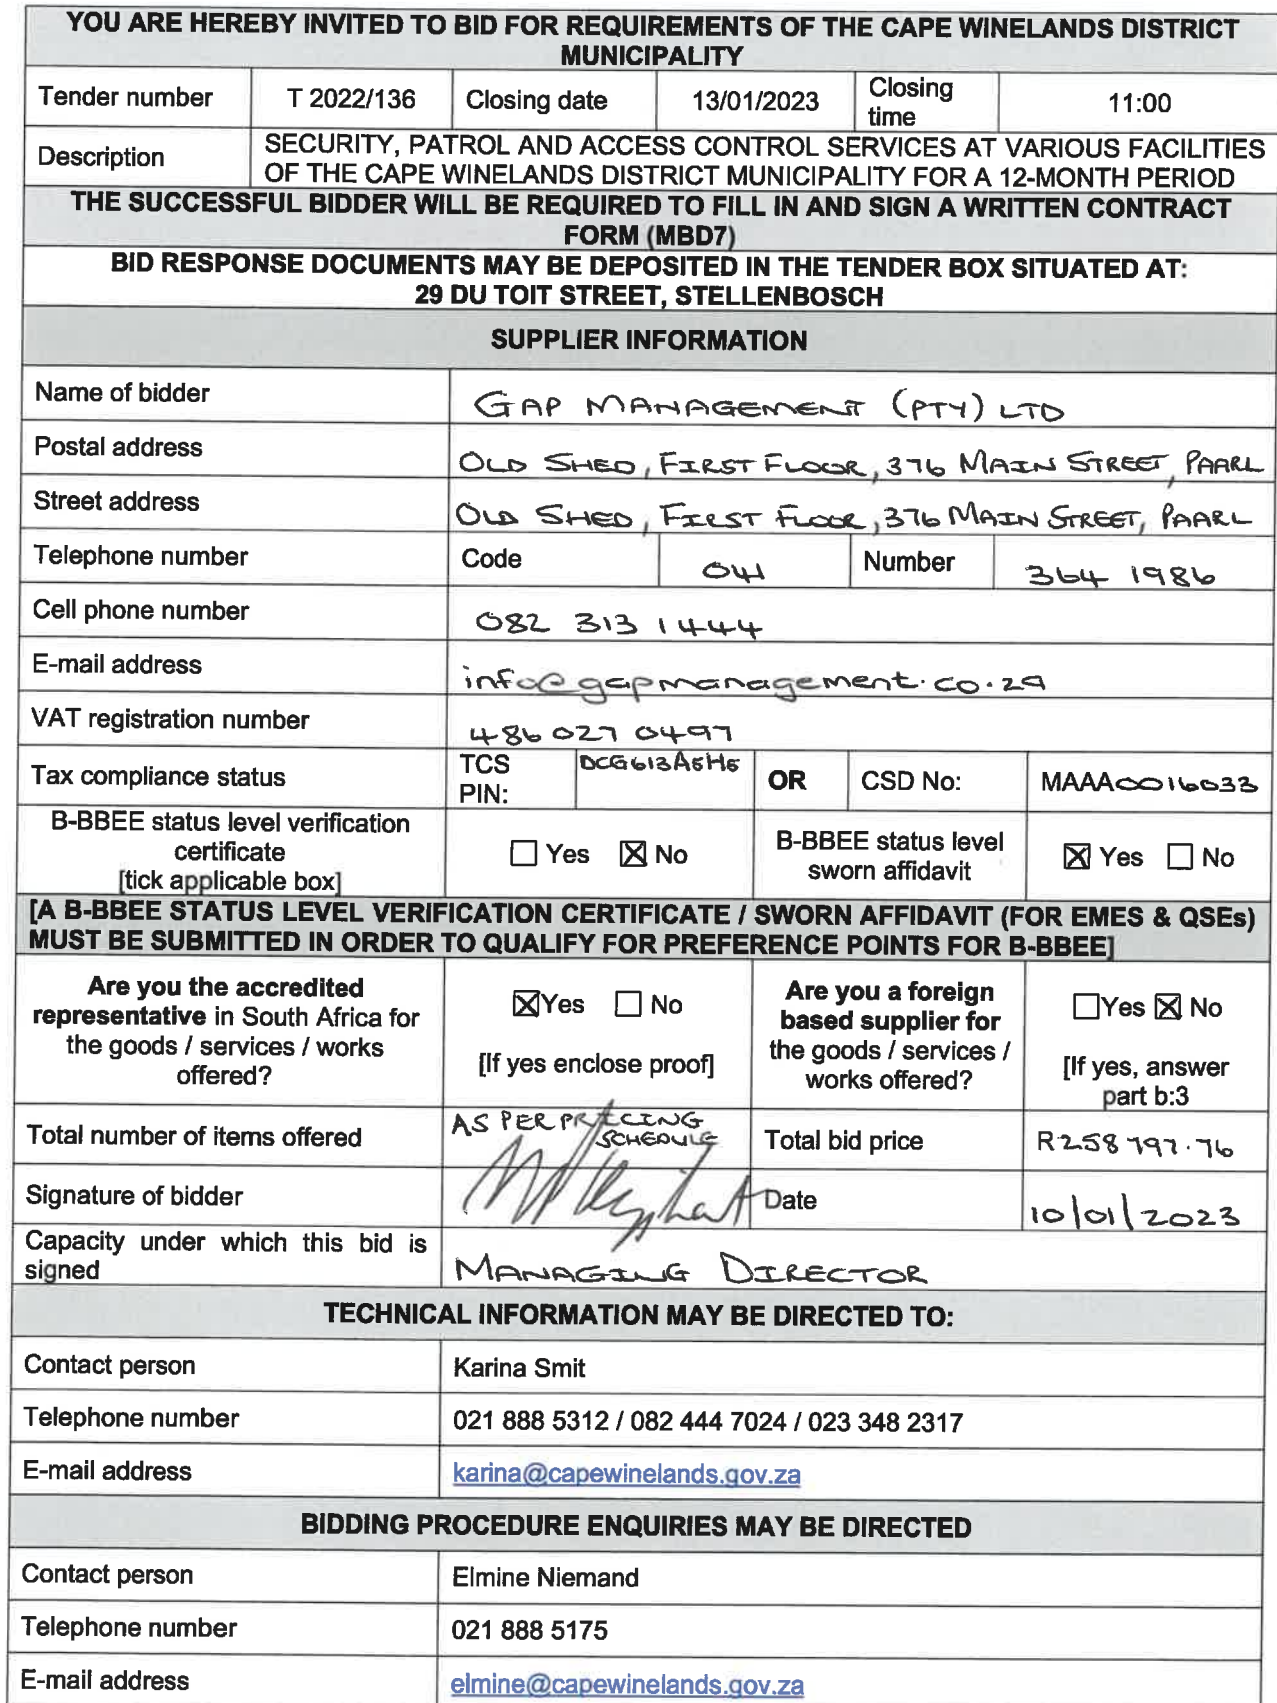 YOU ARE HEREBY INVITED TO BID FOR REQUIREMENTS OF THE CAPE WINELANDS DISTRICT
MUNICIPALITY
Tender number T 2022/136 Closing date 13/01/2023 Closing time 11:00
Description SECURITY, PATROL AND ACCESS CONTROL SERVICES AT VARIOUS FACILITIES
OF THE CAPE WINELANDS DISTRICT MUNICIPALITY FOR A 12-MONTH PERIOD
THE SUCCESSFUL BIDDER WILL BE REQUIRED TO FILL IN AND SIGN A WRITTEN CONTRACT
FORM (MBD7)
BID RESPONSE DOCUMENTS MAY BE DEPOSITED IN THE TENDER BOX SITUATED AT:
29 DU TOIT STREET, STELLENBOSCH
SUPPLIER INFORMATION
Name of bidder GAP MANAGEMENT (PTY) LTD
Postal address OLD SHED, FIRST FLOOR, 376 MAIN STREET, PAARL
Street address OLD SHED, FIRST FLOOR, 376 MAIN STREET, PAARL
Telephone number Code 041 Number 364 1986
Cell phone number 082 313 1444
E-mail address info@gapmanagement.co.za
VAT registration number 486 027 0497
Tax compliance status TCS PIN: DCG613A5H5 OR CSD No: MAAA0016033
B-BBEE status level verification
certificate
[tick applicable box]
☐ Yes ☒ No
B-BBEE status level
sworn affidavit
☒ Yes ☐ No
[A B-BBEE STATUS LEVEL VERIFICATION CERTIFICATE / SWORN AFFIDAVIT (FOR EMES & QSEs)
MUST BE SUBMITTED IN ORDER TO QUALIFY FOR PREFERENCE POINTS FOR B-BBEE]
Are you the accredited
representative in South Africa for
the goods / services / works
offered?
☒Yes ☐ No
[If yes enclose proof]
Are you a foreign
based supplier for
the goods / services /
works offered?
☐Yes ☒ No
[If yes, answer
part b:3
Total number of items offered AS PER PRICING
SCHEDULE
Total bid price R258 797.76
Signature of bidder
Date 10/01/2023
Capacity under which this bid is
signed
MANAGING DIRECTOR
TECHNICAL INFORMATION MAY BE DIRECTED TO:
Contact person Karina Smit
Telephone number 021 888 5312 / 082 444 7024 / 023 348 2317
E-mail address karina@capewinelands.gov.za
BIDDING PROCEDURE ENQUIRIES MAY BE DIRECTED
Contact person Elmine Niemand
Telephone number 021 888 5175
E-mail address elmine@capewinelands.gov.za